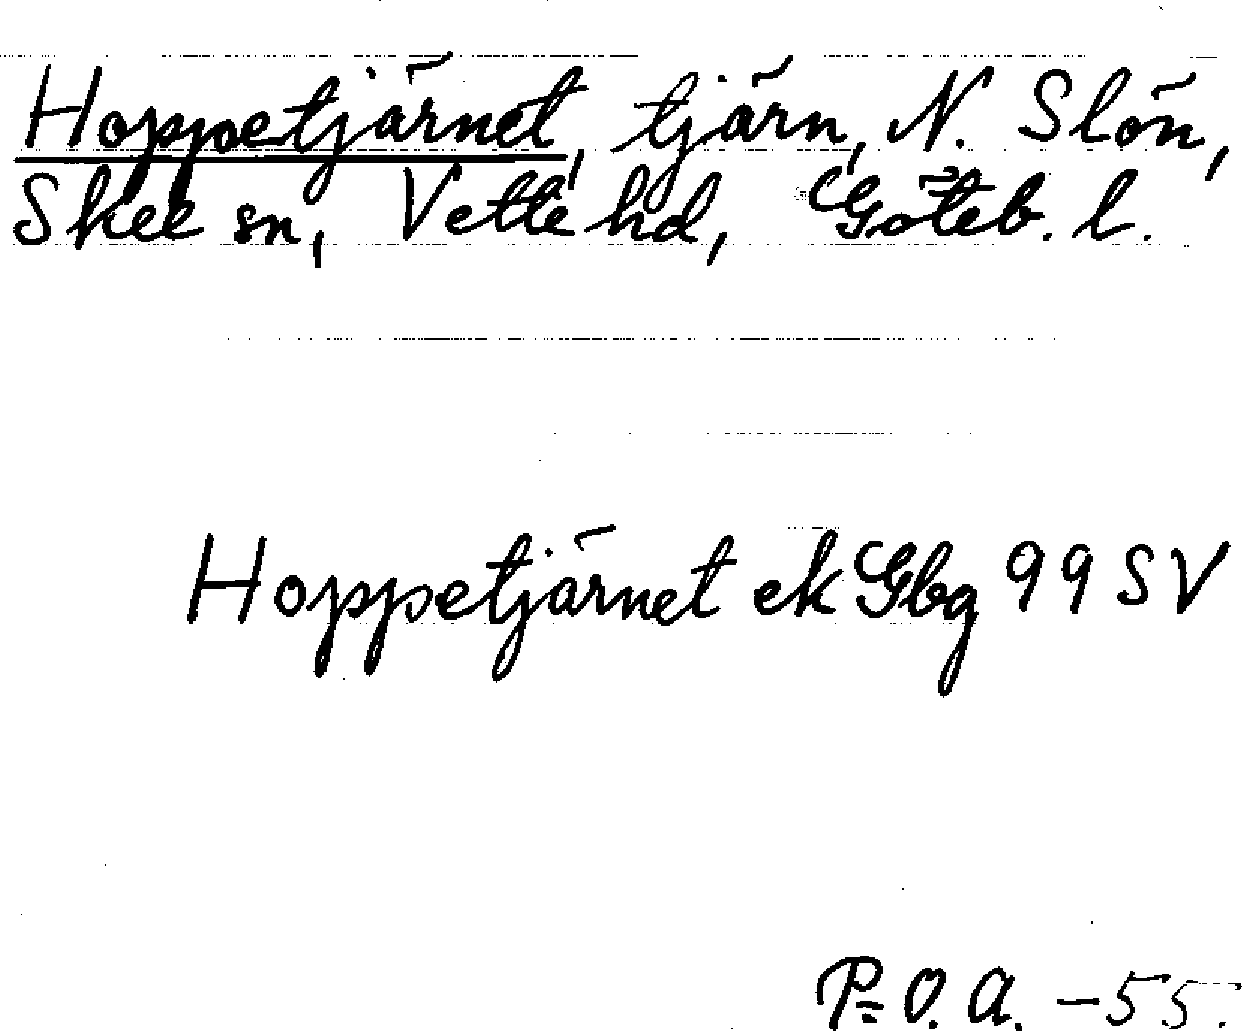 Hoppetjärnet, tjärn, N. Slön,
Skee sn, Vette hd, Göteb. l.
Hoppetjärnet ek Gbg 99 SV
P=O. A. -55.